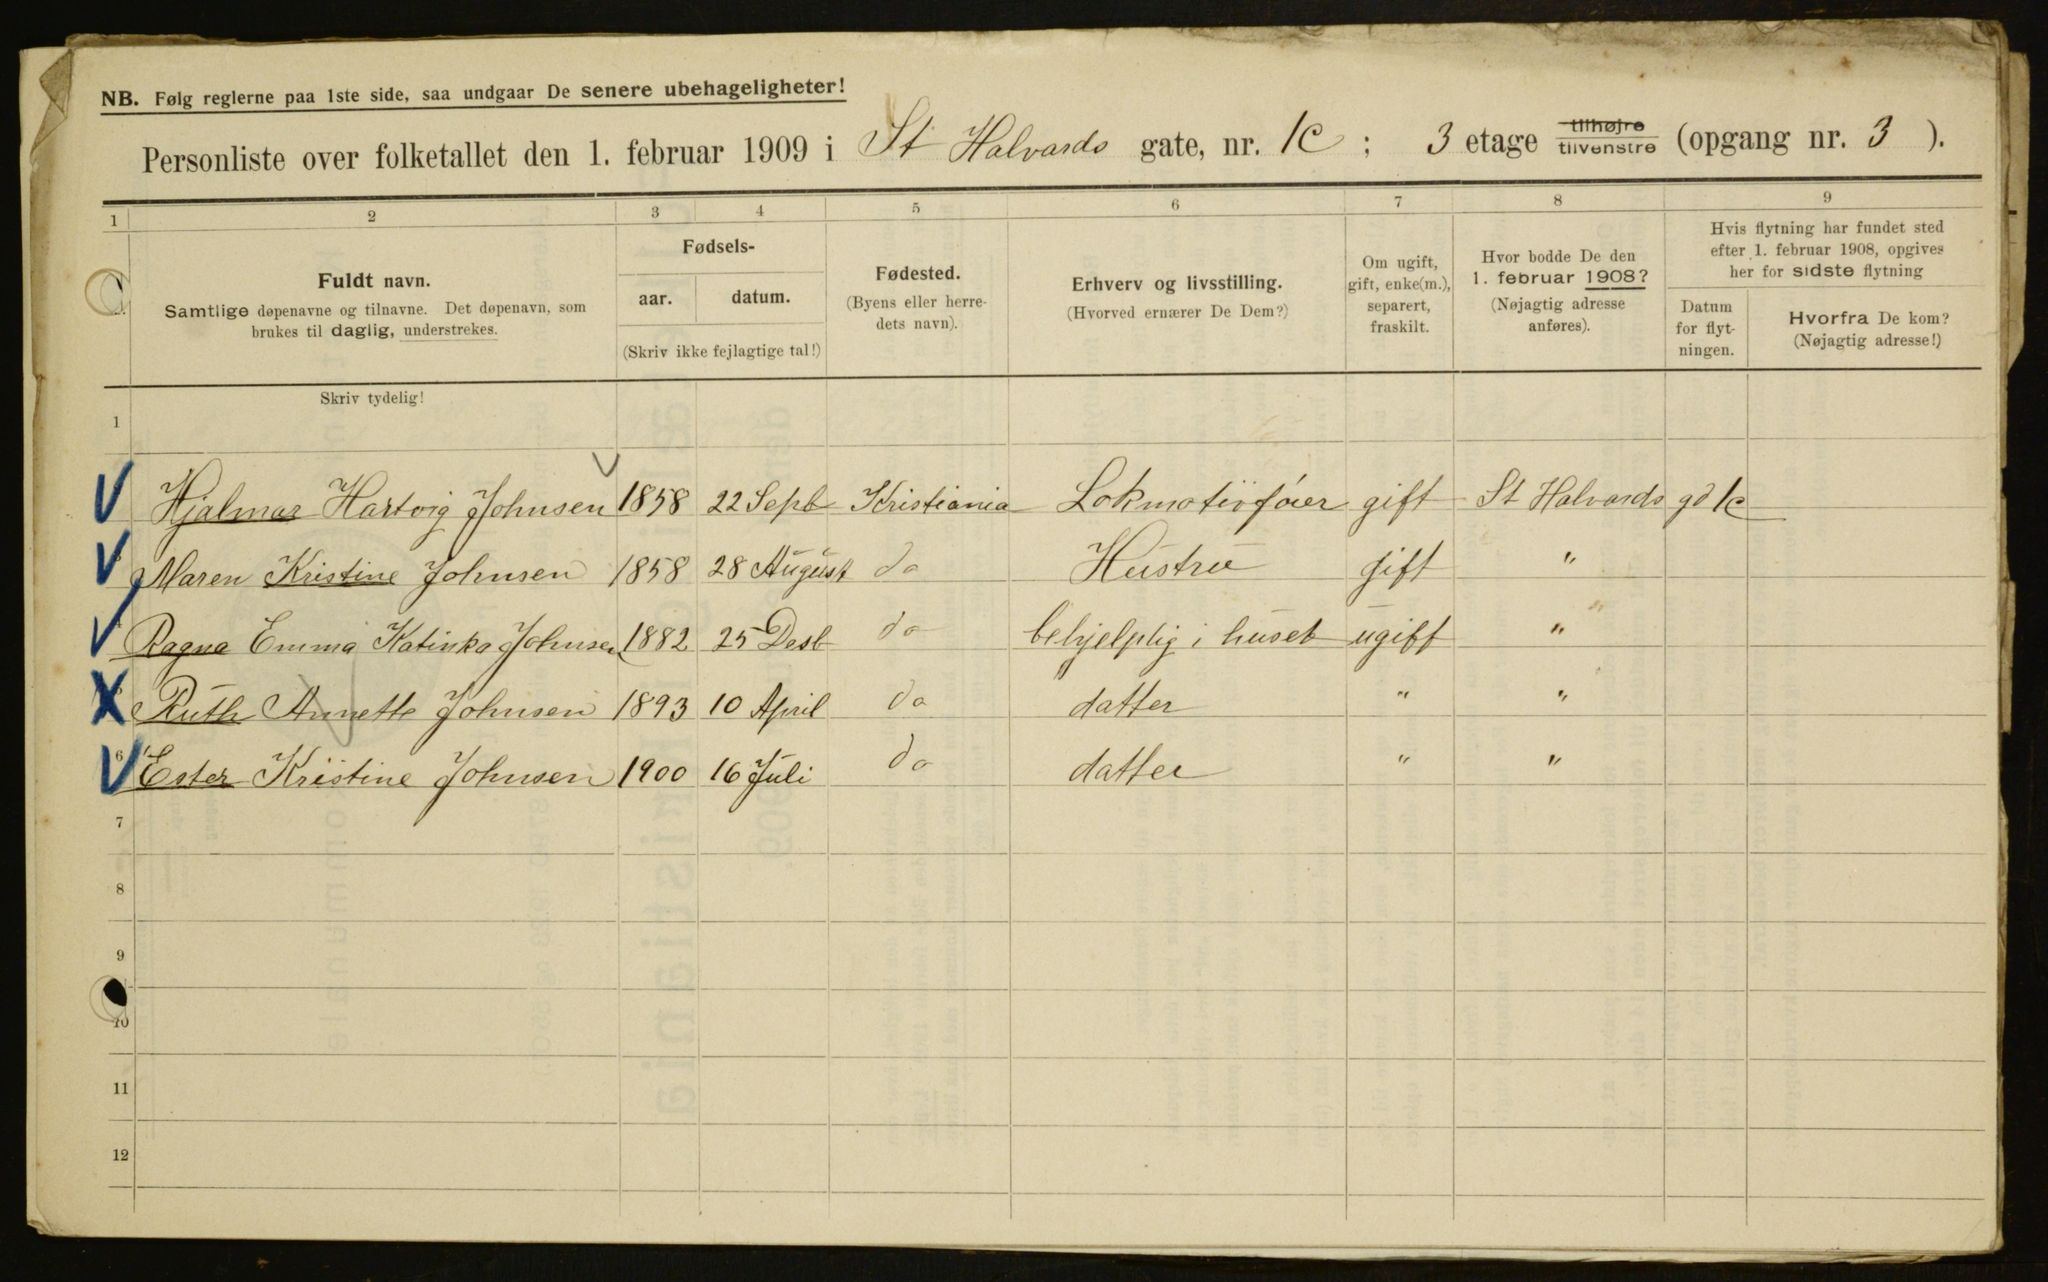 NB. Følg reglerne paa 1ste side, saa undgaar De senere ubehageligheter!
Personliste over folketallet den 1. februar 1909 i St Halvards gate, nr. 1c ; 3 etage tilhøjre tilvenstre (opgang nr. 3 ).
1 2 3 4 5 6 7 8 9
Fuldt navn.
Samtlige døpenavne og tilnavne. Det døpenavn, som
brukes til daglig, understrekes.
Fødsels-
aar. datum.
(Skriv ikke fejlagtige tal!)
Fødested.
(Byens eller herre-
dets navn).
Erhverv og livsstilling.
(Hvorved ernærer De Dem?)
Om ugift,
gift, enke(m.),
separert,
fraskilt.
Hvor bodde De den
1. februar 1908?
(Nøjagtig adresse
anføres).
Hvis flytning har fundet sted
efter 1. februar 1908, opgives
her for sidste flytning
Datum
for flyt-
ningen.
Hvorfra De kom?
(Nøjagtig adresse!)
Skriv tydelig!
1
Hjalmar Hartvig Johnsen 1858 22 Sept Kristiania Lokmotivføier gift St Halvards gd 1c
Maren Kristine Johnsen 1858 28 August do Hustru gift "
Ragna Emma Katinka Johnsen 1882 25 Desb do behjelplig i huset ugift "
Ruth Annette Johnsen 1893 10 April do datter " "
6 Ester Kristine Johnsen 1900 16 Juli do datter " "
7
8
9
10
11
12